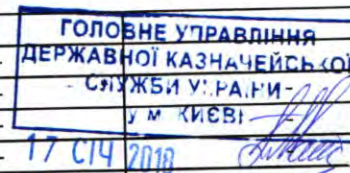 ГОЛОВНЕ УПРАВЛІННЯ
ДЕРЖАВНОЇ КАЗНАЧЕЙСЬКОЇ
СЛУЖБИ УКРАЇНИ
У М. КИЄВІ
17 СІЧ 2018